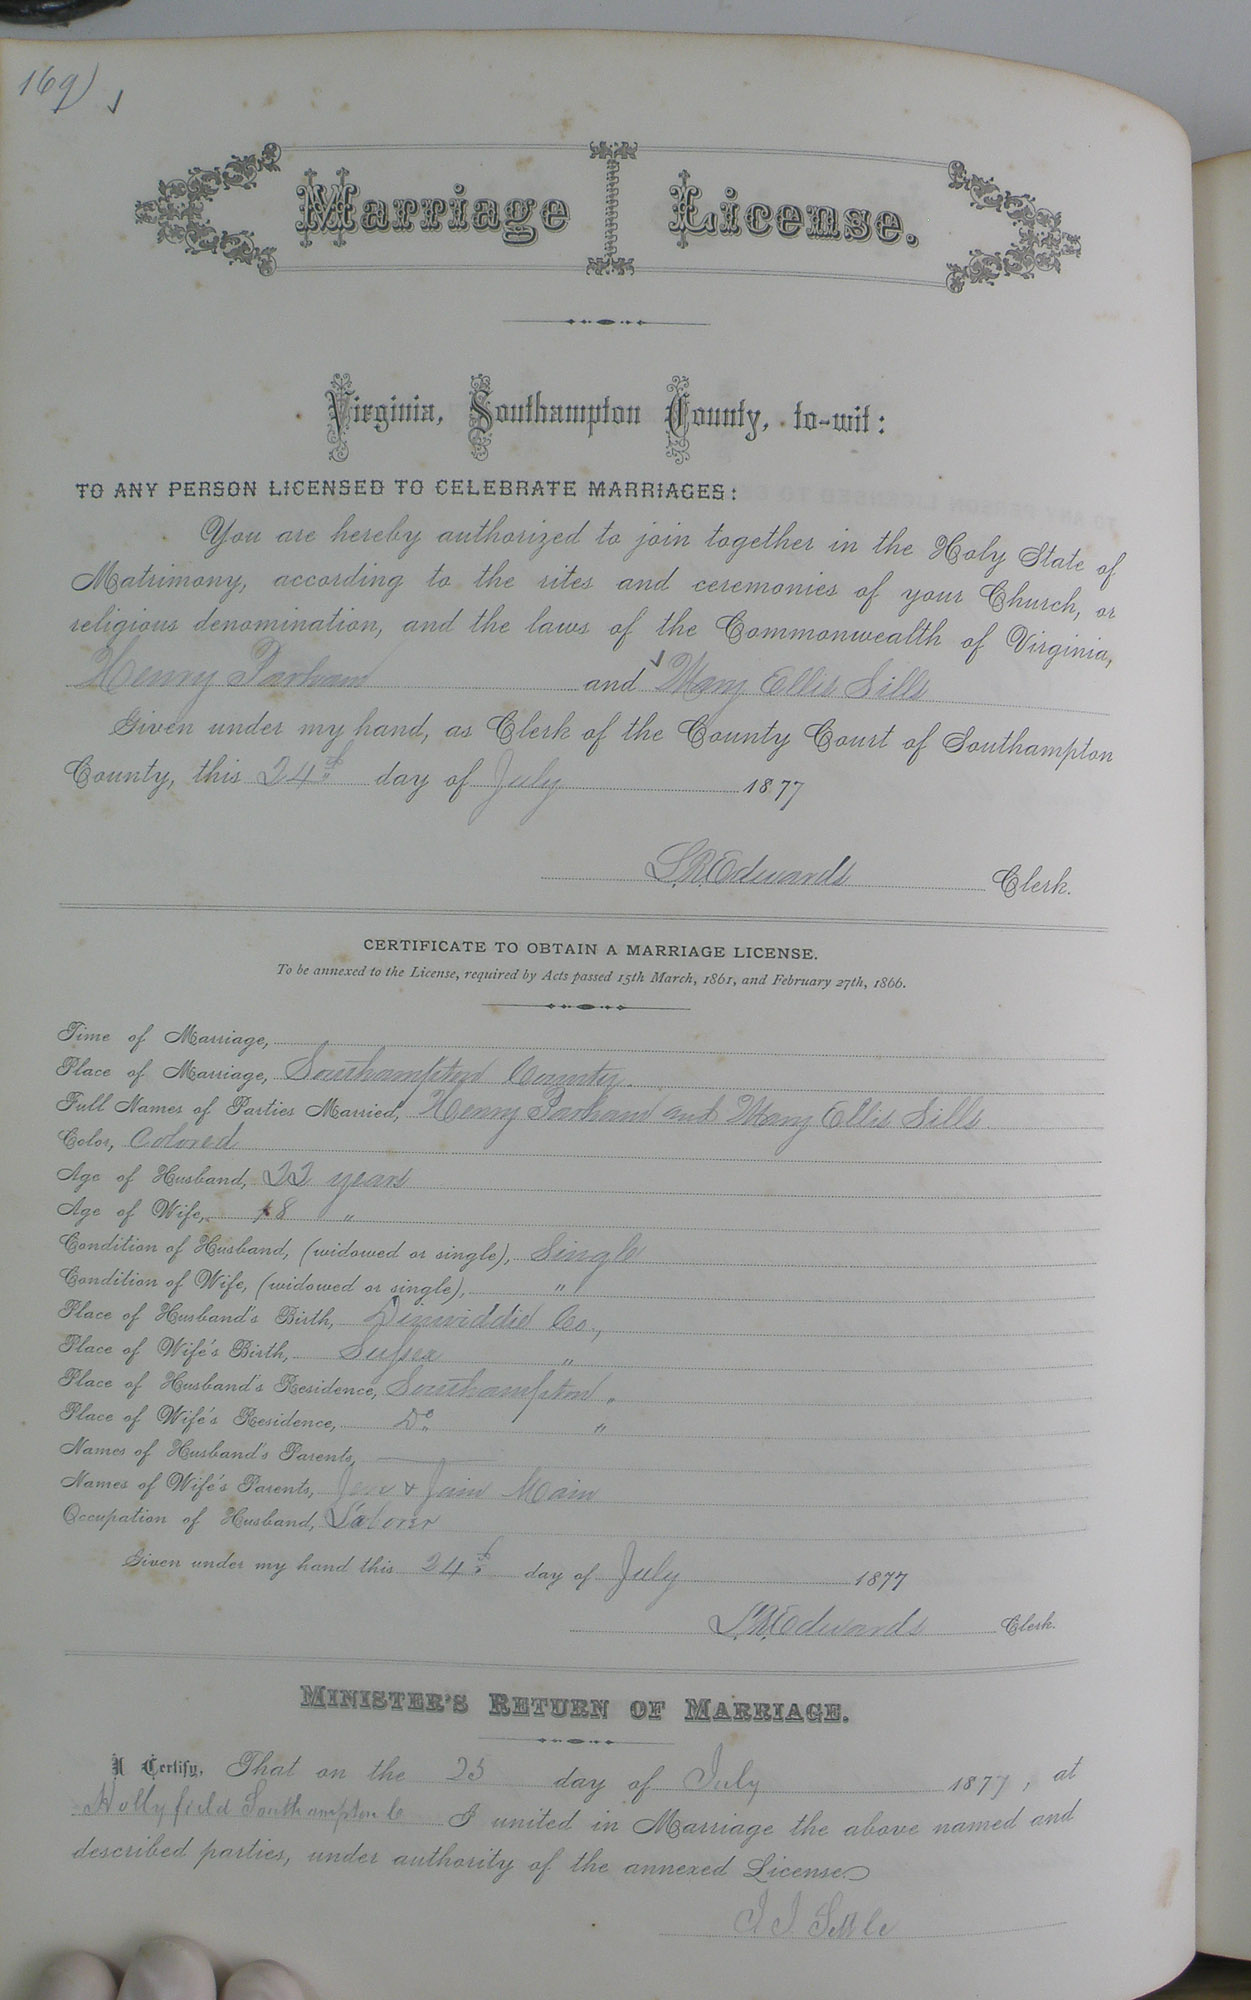 169)
Marriage License.
Virginia, Southampton County, to-wit:
TO ANY PERSON LICENSED TO CELEBRATE MARRIAGES:
You are hereby authorized to join together in the Holy State of
Matrimony, according to the rites and ceremonies of your Church, or
religious denomination, and the laws of the Commonwealth of Virginia,
Henry Parham and Mary Ellis Sills
Given under my hand, as Clerk of the County Court of Southampton
County, this 24th day of July 1877
L.R. Edwards Clerk.
CERTIFICATE TO OBTAIN A MARRIAGE LICENSE.
To be annexed to the License, required by Acts passed 15th March, 1861, and February 27th, 1866.
Time of Marriage,
Place of Marriage, Southampton County.
Full Names of Parties Married, Henry Parham and Mary Ellis Sills
Color, Colored
Age of Husband, 22 years
Age of Wife, 18 "
Condition of Husband, (widowed or single), Single
Condition of Wife, (widowed or single), "
Place of Husband's Birth, Dinwiddie Co.,
Place of Wife's Birth, Sussex "
Place of Husband's Residence, Southampton "
Place of Wife's Residence, Do "
Names of Husband's Parents,
Names of Wife's Parents, & Jain Main
Occupation of Husband, Laborer
Given under my hand this 24th day of July 1877
L.R. Edwards Clerk.
MINISTER'S RETURN OF MARRIAGE.
I Certify, That on the 25 day of July 1877, at
Hollyfield Southampton Co I united in Marriage the above named and
described parties, under authority of the annexed License.